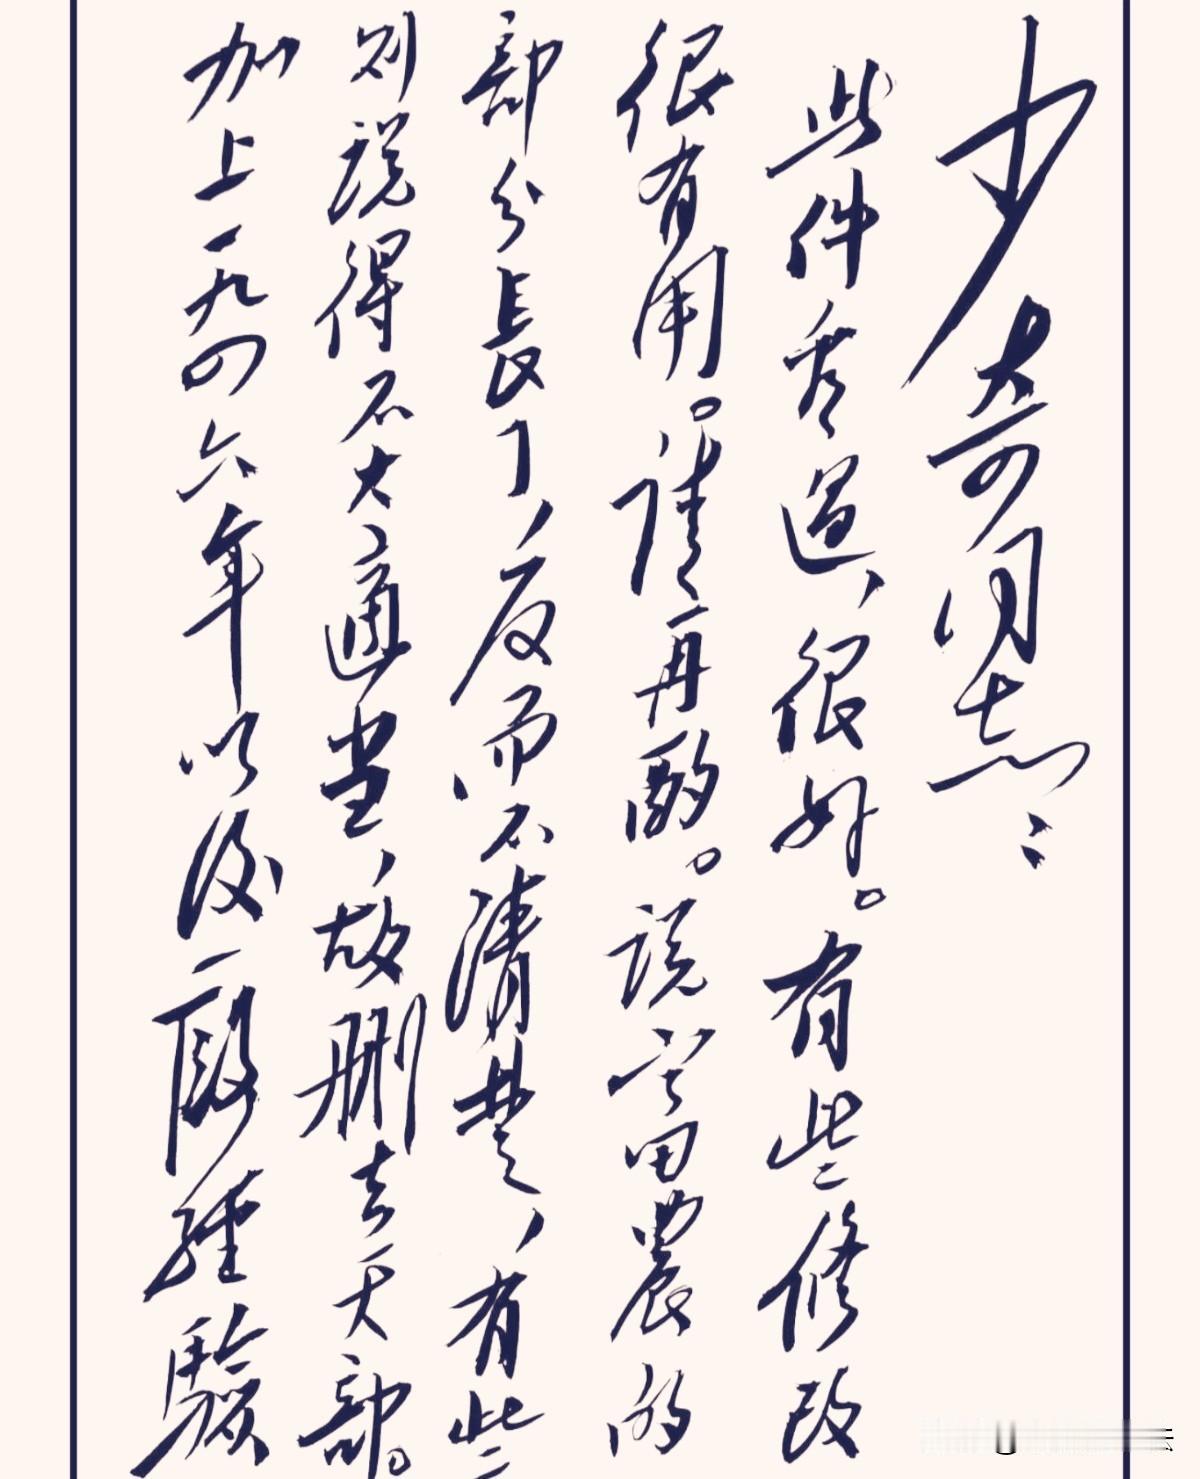 少奇同志：
此件看过，很好。有些修改
很有用。请再酌。说富田農的
部分長了，反而不清楚，有些
则说得不大適当，故删去大部。
加上一九四六年以後一段经驗